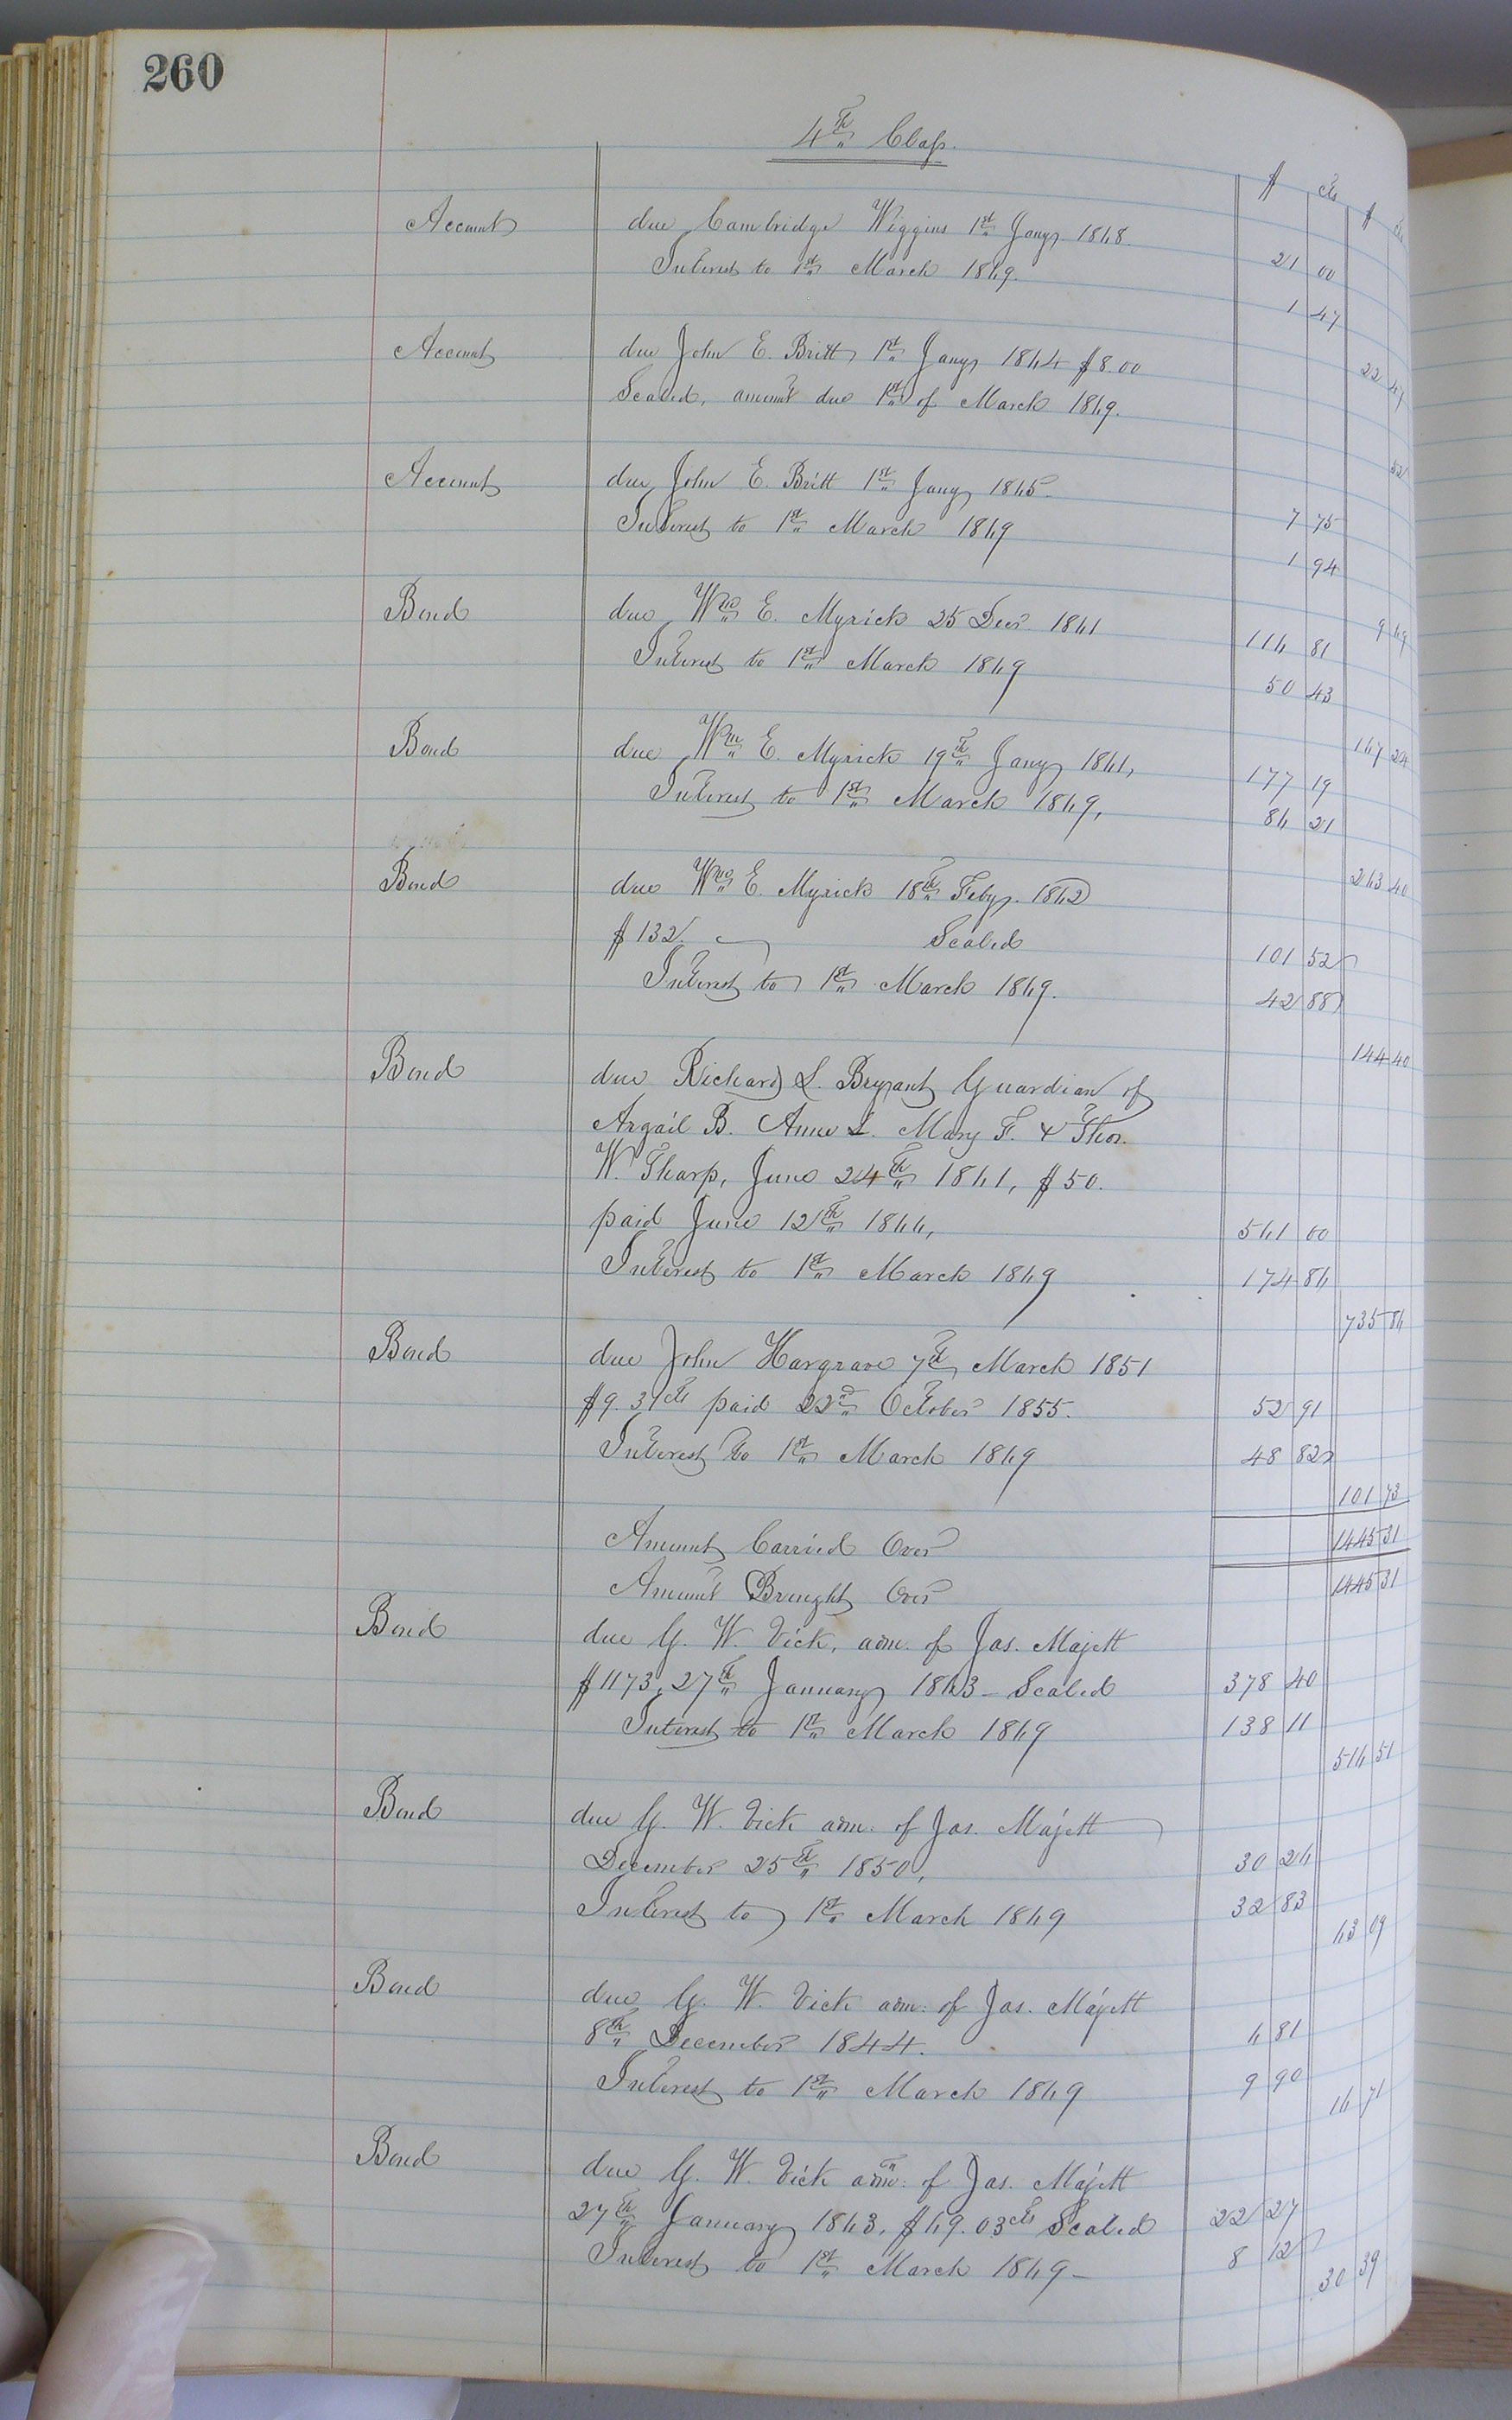 260
4th Class.
$ cts $ cts
Account due Cambridge Wiggins 1st Jany 1868. 21 00
Interest to 1st March 1869. 1 47
22 47
Account due John E. Britt 1st Jany 1864 $8.00
Scaled, amount due 1st of March 1869.
52
Account due John E. Britt 1st Jany 1865. 7 75
Interest to 1st March 1869 1 94
9 69
Bond due Wm E. Myrick 25 Decr 1861 116 81
Interest to 1st March 1869 50 43
167 24
Bond due Wm E. Myrick 19th Jany 1861, 177 19
Interest to 1st March 1869, 86 21
263 40
Bond due Wm E. Myrick 18th Feby. 1862
$132. Scaled 101 52
Interest to 1st March 1869. 42 88
144 40
Bond due Richard L. Bryant Guardian of
Argail B. Anne L. Mary F. & Thos.
W. Tharp, June 24th 1861, $50.
paid June 12th 1866, 561 00
Interest to 1st March 1869 174 86
735 86
Bond due John Hargrave 7th March 1851
$9.31cts paid 22nd October 1855. 52 91
Interest to 1st March 1869 48 82
101 73
Amount Carried Over 1445 31
Amount Brought Over 1445 31
Bond due G. W. Vick, adm. of Jas. Majett
$1173, 27th January 1863 - Scaled 378 40
Interest to 1st March 1869 138 11
516 51
Bond due G. W. Vick adm. of Jas. Majett
December 25th 1850, 30 26
Interest to 1st March 1869 32 83
63 09
Bond due G. W. Vick adm: of Jas. Majett
8th December 1844. 6 81
Interest to 1st March 1869 9 90
16 71
Bond due G. W. Vick adm: of Jas. Majett
27th January 1863, $69.03cts Scaled 22 27
Interest to 1st March 1869 - 8 12
30 39